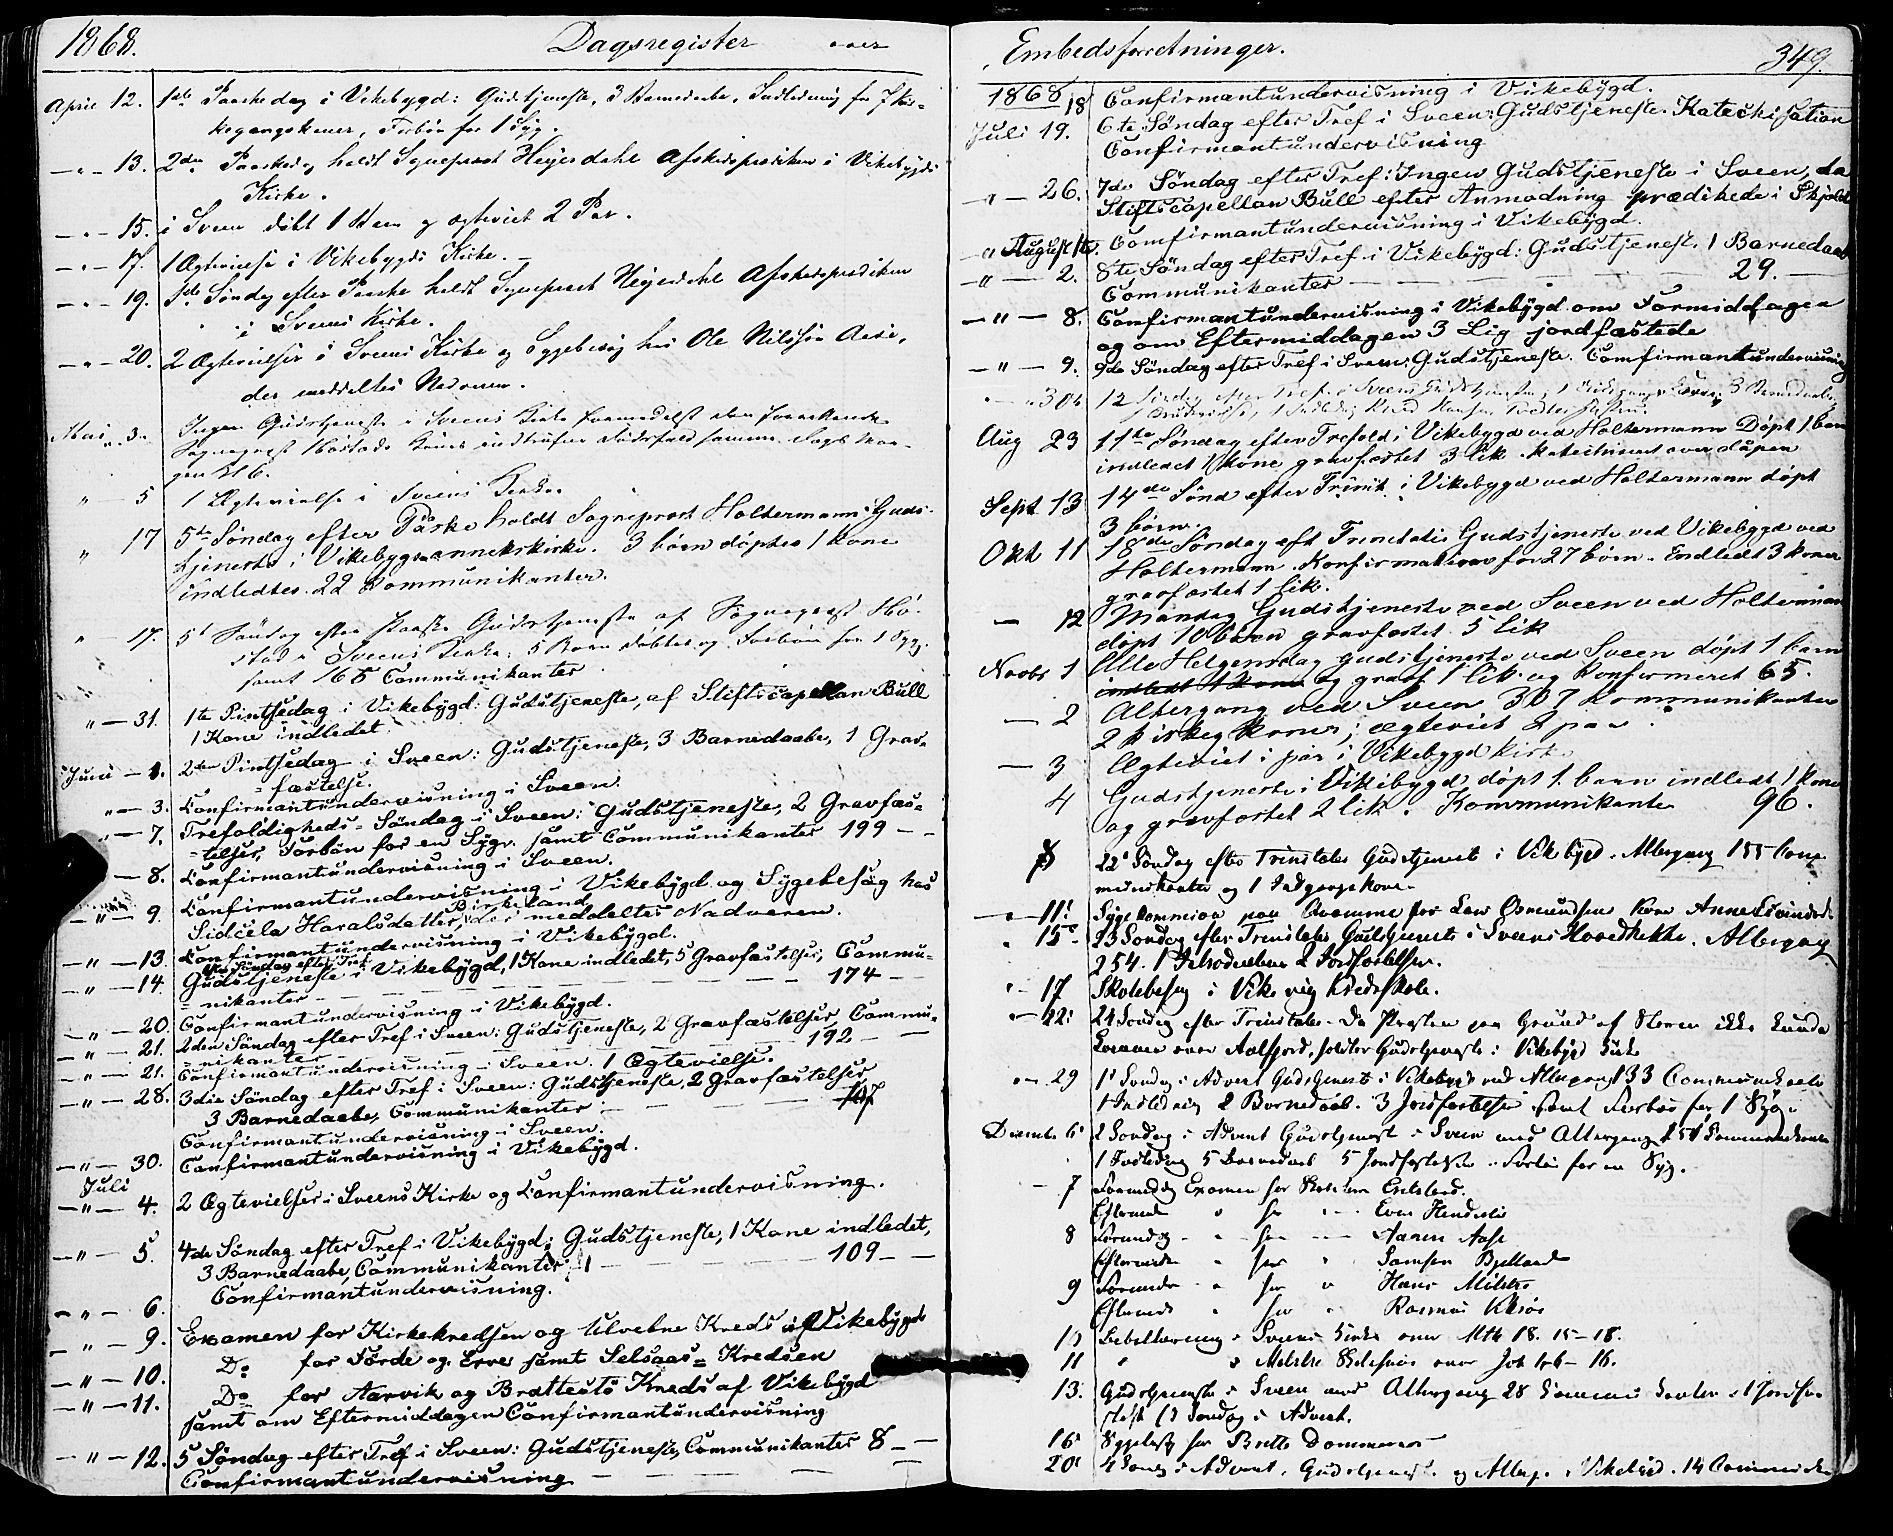 1868. Dagsregister over
April 12. 1ste Paaskedag i Vikebygd: Gudstjeneste, 3 Barnedaabe, Indledning for 7 Kir-
kegangskoner, Forbøn for 1 Syg.
— " — 13. 2den Paaskedag holdt Sognepræst Heyerdahl Afskedsprædiken i Vikebygds
Kirke.
— " — 15. i Sveen døbt 1 Barn og ægteviet 2 Par.
— " — 17. 1 Ægtevielse i Vikebygds Kirke. —
— " — 19. 1ste Søndag efter Paaske holdt Sognepræst Heyerdahl Afskedsprædiken
i Sveens Kirke.
— " — 20. 2 Ægtevielser i Sveens Kirke og Sygebesøg hos Ole Nilssøn
der meddeltes Nadveren.
Mai " 3. Ingen Gudstjeneste i Sveens Kirke formedelst
Sognepræst samme Dags
gen Kl 6.
" — 5 1 Ægtevielse i Sveens Kirke.
" 17 5te Søndag efter Påske holdt Sogneprest Holtermann Guds-
tjeneste i Vikebygs annekskirke. 3 børn døptes 1 kone
indledtes. 22 Kommunikanter.
" — 17. 5te Søndag efter Paaske Gudstjeneste af Sognepræst
i Sveens Kirke. 5 Børn døbtes og Forbøn for 1 Syg
samt 165 Communikanter
" — 31. 1te Pintsedag i Vikebygd: Gudstjeneste, af Stiftscapellan Bull
1 Kone indledet.
Juni — 1. 2den Pintsedag i Sveen: Gudstjeneste, 3 Barnedaabe, 1 Grav-
= fæstelse.
" — 3. Confirmantundervisning i Sveen.
" — 7. Trefoldigheds-Søndag i Sveen: Gudstjeneste, 2 Gravfæs-
-telser, Forbøn for en Syg. samt Communikanter 199 — -
— 8. Confirmantundervisning i Sveen.
— " — 9. Confirmantundervisning i Vikebygd og Sygebesøg hos
Birkeland
Sidcela Haralsdatter, der meddeltes Nadveren.
— " — 13. Confirmantundervisning i Vikebygd.
1ste Søndag efter Tref.
— " — 14. Gudstjeneste i Vikebygd, 1 Kone indledet, 5 Gravfæstelser, Commu-
= nikanter — — — — — — — 174 —
— " — 20. Confirmantundervisning i Vikebygd.
— " — 21. 2den Søndag efter Tref i Sveen: Gudstjeneste, 2 Gravfæstelser, Commu-
= nikanter — — — — — — — 192 —
— " — 21. Confirmantundervisning i Sveen. 1 Ægtevielse.
— " — 28. 3die Søndag efter Tref i Sveen: Gudstjeneste, 2 Gravfæstelser
3 Barnedaabe, Communikanter: — — — — 107
Confirmantundervisning i Sveen.
— " — 30. Confirmantundervisning i Vikebygd.
Juli
— " — 4. 2 Ægtevielser i Sveens Kirke og Confirmantundervisning.
— " — 5. 4de Søndag efter Tref i Vikebygd; Gudstjeneste, 1 Kone indledet,
3 Barnedaabe, Communikanter: — — — — 109 — —
Confirmantundervisning.
— " — 6.
— " — 9. Examen for Kirkekredsen og Ulvebne Kreds af Vikebygd
— " — 10. Do for Førde og Erve samt Selsaas= Kredsen
— " — 11. Do for Aarvik og Brattestø Kreds af Vikebygd
samt om Eftermiddagen Confirmantundervisning
— " — 12. 5 Søndag efter Tref i Sveen: Gudstjeneste, Communikanter 8 — —
Confirmantundervisning — — — — —
Embedsforretninger. 349.
1868
18 Confirmantundervisning i Vikebygd.
Juli 19. 6te Søndag efter Tref i Sveen: Gudstjeneste. Katechisation
Confirmantundervisning
— " — 26. 7de Søndag efter Tref: Ingen Gudstjeneste i Sveen, da
Stiftscapellan Bull efter Anmodning prædikede i Skjold
— " August 1ste. Confirmantundervisning i Vikebygd.
— " — 2. 8te Søndag efter Tref i Vikebygd: Gudstjeneste. 1 Barnedaab
Communikanter — — — — — — 29. —
— " — 8. Confirmantundervisning i Vikebygd om Formiddagen
og om Eftermiddagen 3 Lig jordfæstede
— " — 9. 9de Søndag efter Tref i Sveen: Gudstjeneste. Confirmantundervisning
30te 12 Søndag efter Tref. i Sveen Gudstjeneste, 3 Barnedaabe,
Aug 23 11te Søndag efter Trefold i Vikebygd ved Holtermann Døpt 1 barn
indledet 1 kone gravfæstet 3 lik. Katechiseret over dåpen
Sept 13 14de Sønd efter Trinit i Vikebygd ved Holtermann døpt
3 børn.
Okt 11 18de Søndag eft Trinitatis Gudstjeneste ved Vikebygd ved
Holtermann. Konfirmation for 27 børn. Indledt 3 koner
gravfæstet 1 lik.
— 12 Mandag Gudstjeneste ved Sveen ved Holtermann
døpt 10 børn gravfæstet 5 lik
Novbr 1 Alle Helgensdag gudstjeneste ved Sveen døpt 1 barn
indledt 1 kone og gravf 1 lik og konfirmeret 65.
— 2 Altergang ved Sveen 307 kommunikanter
2 kirkeg koner; ægteviet 2 par
— 3 Ægteviet i par i Vikebygd kirk
4 Gudstjeneste i Vikebygd døpt 1. barn indledt 1 kone
og gravfæstet 2 lik. Kommunikanter 96.
8 22de Søndag efter Trinitatis Gudstjeneste i Vikebygd. Altergang 155 Com-
munikanter og 1 Indgangskone.
— " — 11te Sygekommunion paa
" 15de 23 Søndag efter Trinitatis Gudstjeneste i Sveens Hovedkirke. Altergang
254. 1 Introduction 2 Jordfæstelser.
" — 17 Skolebesøg i Vikevig Kredsskole.
" — 22. 24 Søndag efter Trinitatis. Da Presten paa Grund af Storm ikke kunde
komme over Aalfjord, holdtes Gudstjeneste i Vikebygd Kirke
" — 29 1ste Søndag i Advent Gudstjeneste i Vikebygd med Altergang 133 Communikanter
1 Indledning 2 Barnedaab. 3 Jordfæstelser samt Forbøn for 1 Syg.
December 6te 2 Søndag i Advent Gudstjeneste i Sveen med Altergang 251 Communikanter
1 Indledning 5 Barnedaab 5 Jordfæstelser. Forbøn for en Syg.
— 7 Formiddag Examen for
Efterm " for "
8 Formiddag " for Aase
Efterm " for " Samson Bjelland
9 Formidd " for " Hans
Efterm " for " Rasmus
10 Bibellæsning i Sveens Kirke over Mth 18. 15–18.
11 " i over Joh 1.6–16.
13. Gudstjeneste i Sveen med Altergang 28 Communikanter 1 Jordfæ-
stelse (3 Søndag i Advent.
16 Sygebesøg hos
20de 4 Søndag i Advent. Gudstjeneste og Alterg. i Vikebygd. 14 Communik.